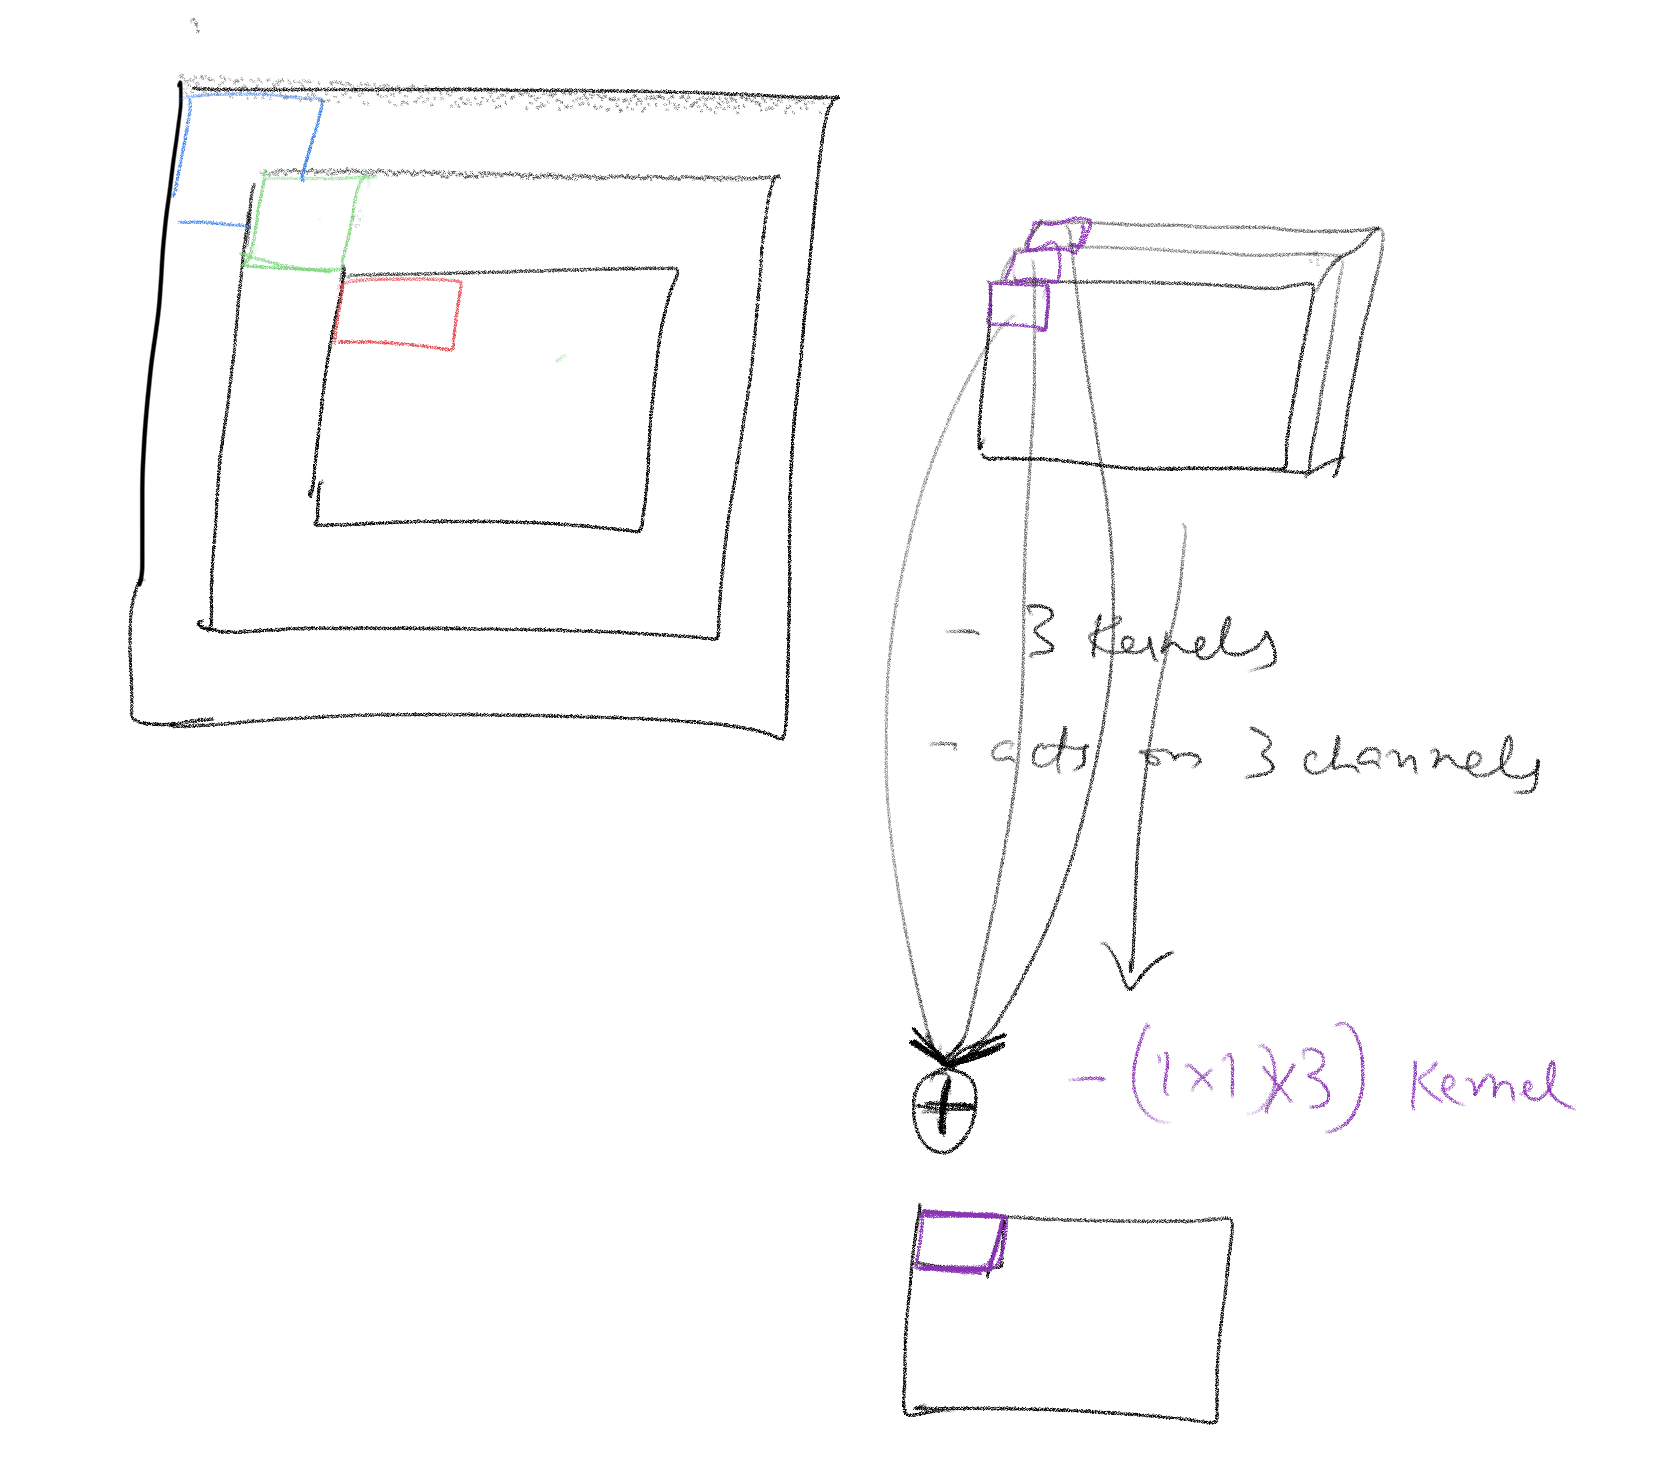 - 3 Kernels
- acts on 3 channels
+
- (1x1)x3) Kernel